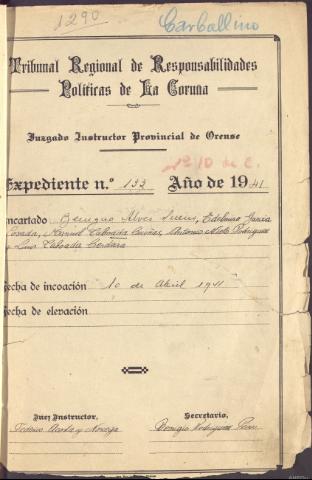 1290
Carballino
Tribunal Regional de Responsabilidades
Políticas de La Coruna
Juzgado Instructor Provincial de Orense
1º 10 de C.
Expediente n.º 133 Año de 1941
ncartado Benigno Alves , Edelmiro García
Posada, Manuel Taboada , Antonio Nieto Rodríguez
y Luis Taboada
fecha de incoación 10 de Abril 1941
fecha de elevación
Juez Instructor, Secretario,
Federico Acosta y Noriega Benigno Rodríguez